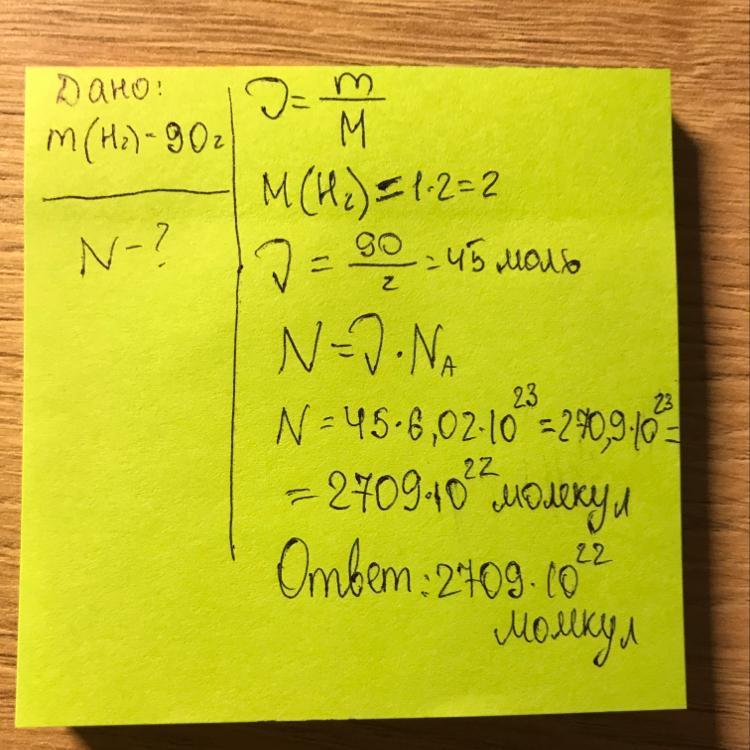 Дано:
m(H₂) - 90г
N - ?
ν = m/M
M(H₂) = 1·2 = 2
ν = 90/2 = 45 моль
N = ν · N_A
N = 45·6,02·10²³ = 270,9·10²³ =
= 2709·10²² молекул
Ответ: 2709·10²²
молекул